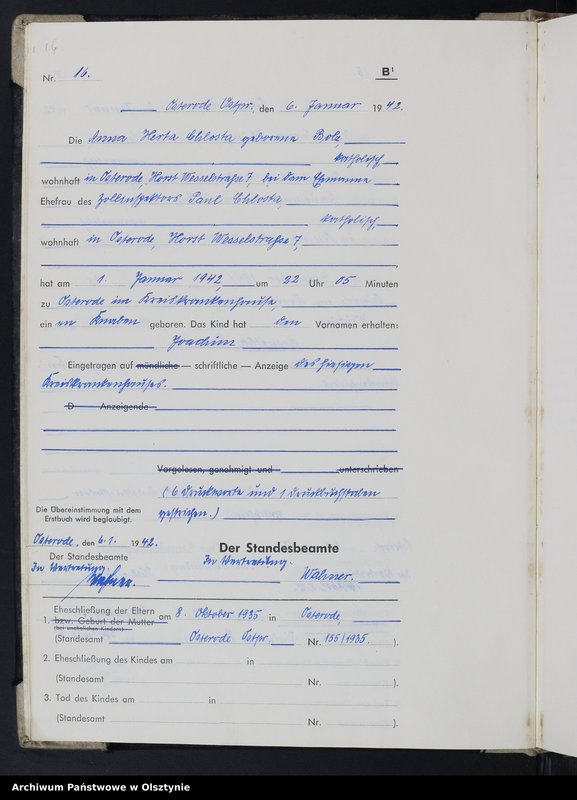 Nr. 16. B¹
Osterode Ostpr., den 6. Januar 1942.
Die Anna Herta Chlosta geborene Bolz,
katholisch,
wohnhaft in Osterode, Horst Wesselstraße 7, bei dem Ehemanne
Ehefrau des Zollinspektors Paul Chlosta,
katholisch,
wohnhaft in Osterode, Horst Wesselstraße 7,
hat am 1. Januar 1942, um 22 Uhr 05 Minuten
zu Osterode im Kreiskrankenhause,
ein en Knaben geboren. Das Kind hat den Vornamen erhalten:
Joachim
Eingetragen auf mündliche — schriftliche — Anzeige des hiesigen
Kreiskrankenhauses.
D Anzeigende
Vorgelesen, genehmigt und unterschrieben
(6 Druckworte und 1 Druckbuchstaben
gestrichen.)
Die Übereinstimmung mit dem
Erstbuch wird beglaubigt.
Osterode, den 6.1. 1942.
Der Standesbeamte
In Vertretung:
Der Standesbeamte
In Vertretung:
1. Eheschließung der Eltern
bzw. Geburt der Mutter
(bei unehelichen Kindern)
am 8. Oktober 1935 in Osterode,
(Standesamt Osterode Ostpr. Nr. 155/1935. ).
2. Eheschließung des Kindes am in
(Standesamt Nr. ).
3. Tod des Kindes am in
(Standesamt Nr. ).
Archiwum Państwowe w Olsztynie